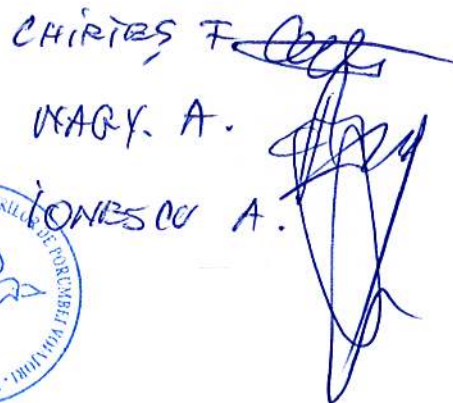 CHIRIEȘ F.
NAGY. A.
IONESCU A.
RILOR DE PORUMBEI VOIAJORI